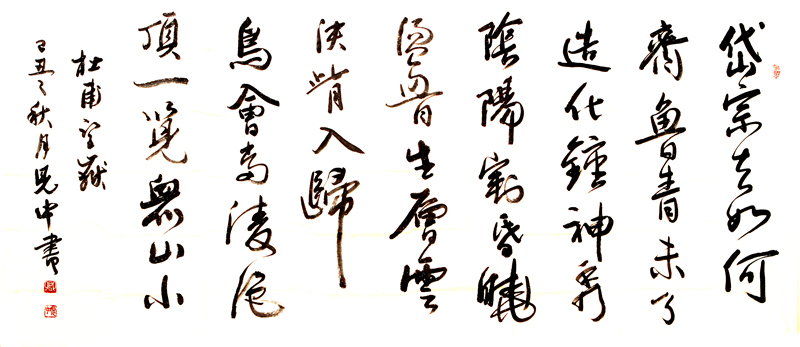 岱宗夫如何
齊魯青未了
造化鍾神秀
陰陽割昏曉
盪胷生層雲
決眥入歸
鳥會當凌絕
頂一覽眾山小
杜甫望嶽
己丑之秋月中書